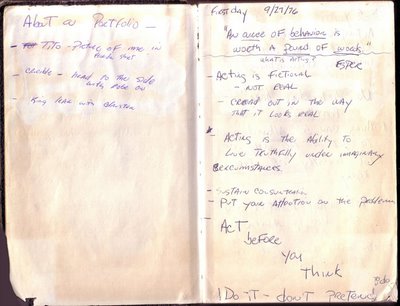 About a Portfolio —
- Tito - Picture of me in
- head to the side
with robe on
- King Lear with
Tuesday 9/27/76
"An ounce of behavior is
worth a pound of words."
what is acting?
- Acting is fictional
- not real
- out in the way
that it looks real
- Acting is the ability to
live truthfully under imaginary
circumstances.
- sustain
- Put your attention on the problem
Act
before
you
think
Do it - don't pretend